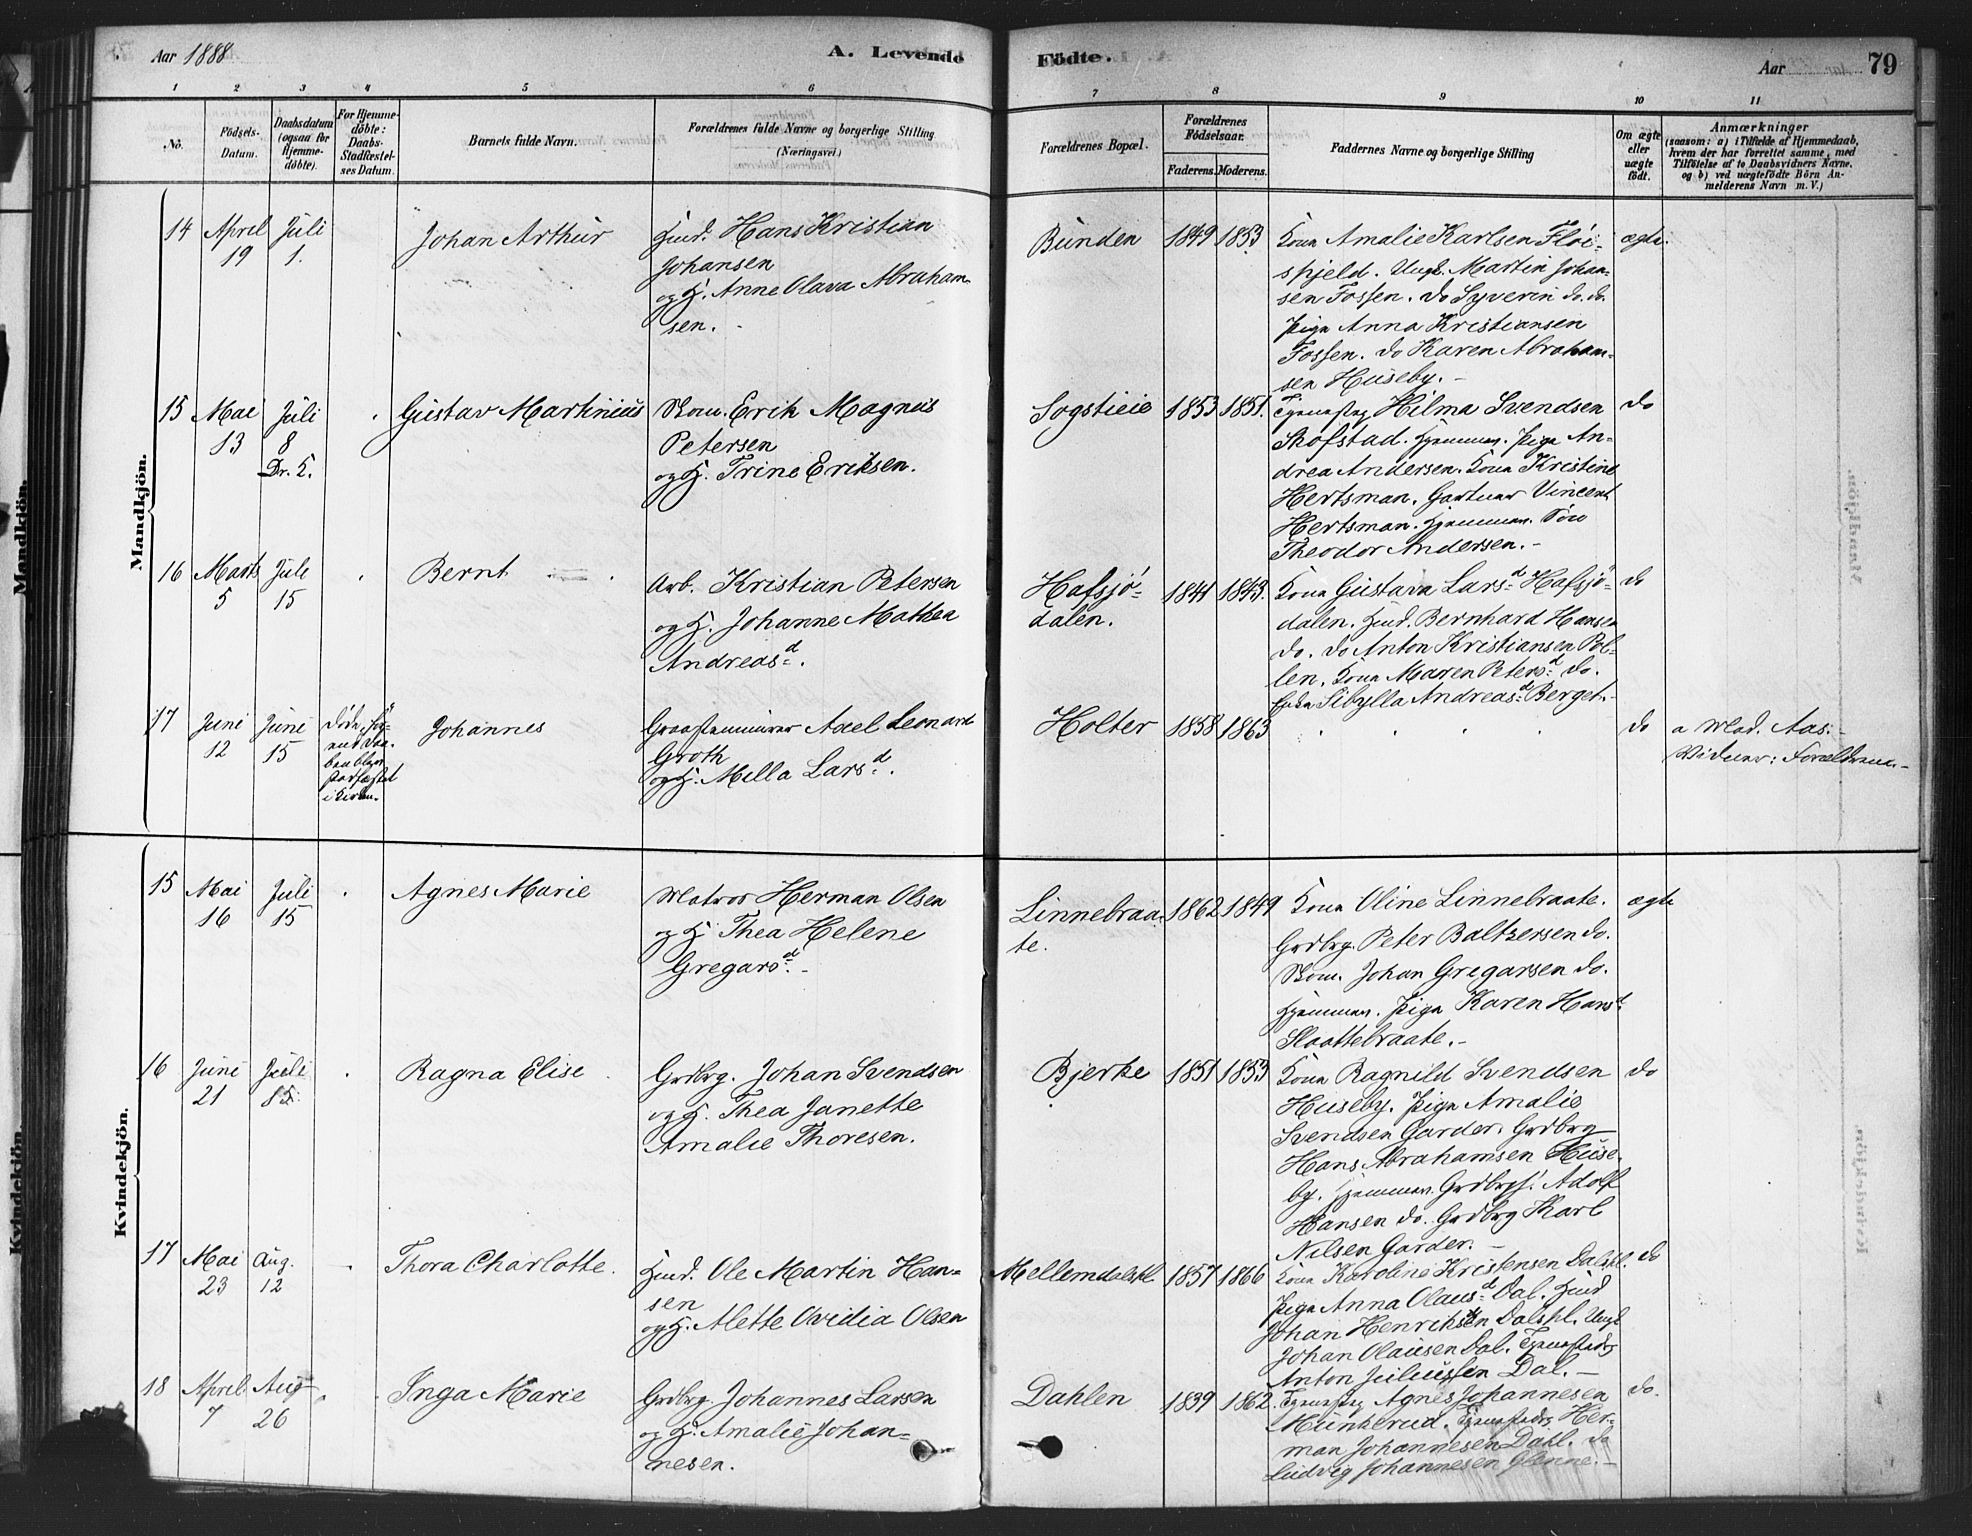 Aar 1888
A. Levende
Födte.
Aar
79
1
2
3
4
5
6
7
8
9
10
11
No.
Födsels-
Datum.
Daabsdatum
(ogsaa for
Hjemme-
döbte).
For Hjemme-
döbte:
Daabs-
Stadfæstel-
ses Datum.
Barnets fulde Navn.
Forældrenes fulde Navne og borgerlige Stilling
(Næringsvei.)
Forældrenes Bopæl.
Forældrenes
Födselsaar.
Faderens.
Moderens.
Faddernes Navne og borgerlige Stilling
Om ægte
eller
uægte
födt.
Anmærkninger
(saasom: a) i Tilfælde af Hjemmedaab,
hvem der har forrettet samme, med
Tilföielse af to Daabsvidners Navne,
og b) ved uægtefödte Börn An-
melderens Navn m. V.)
Mandkjön.
14
April
19
Juli
1.
Johan Arthur
Hans Kristian
Johansen
og H. Anne Olava Abraham-
sen.
Bunden
1849
1853
Kona Amalie Karlsen Fløi-
spjeld. Ungk. Martin Johan-
sen Fossen. do Syverin do. do.
Pige Anna Kristiansen
Fossen. do Karen Abraham-
sen Huseby.-
ægte.
15
Mai
13
Juli
8
Dr. K.
Gustav Martinius
Skom. Erik Magnus
Petersen
og H. Trine Eriksen.
Sogstieie
1853
1851.
Hilma Svendsen
Skofstad. Hjemmev. Pige An-
drea Andersen. Kona Kristine
Hertsman. Gartner Vincent
Hertsman. Hjemmev. Søn
Theodor Andersen.-
do
16
Marts
5
Juli
15
Bernt
Arb. Kristian Petersen
og H. Johanne Mathea
Andreasd.
Hafsjø-
dalen.
1841
1843.
Kona Gustava Larsd Hafsjø-
dalen. Bernhard Hansen
do. do Anton Kristiansen Pol-
len. Kona Maren Petersd do.
Enke Sibylla Andreasd Berget.-
do
17
Juni
12
Juni
15
i Kirken.
Johannes
Graastensmurer Axel Leonard
Groth
og H. Milla Larsd.
Holter
1858
1863
do
a Mad. Aas.-
Vidner: Forældrene.-
Kvindekjön.
15
Mai
16
Juli
15
Agnes Marie
Matros Herman Olsen
og H. Thea Helene
Gregarsd.-
Linnebraa-
te.
1862
1849
Kona Oline Linnebraate.
Grdbrg. Peter Baltzersen do.
Skom. Johan Gregarsen do.
Hjemmev. Pige Karen Hansd
Slaattebraate.-
ægte
16
Juni
21
Juli
Ragna Elise
Grdbrg. Johan Svendsen
og H. Thea Janette
Amalie Thoresen.
Bjerke
1851
1853
Kona Ragnild Svendsen
Huseby. Pige Amalie
Svendsen Garder. Grdbrg
Hans Abrahamsen Huse-
by. Hjemmev. Grdbrgs. Adolf
Hansen do. Grdbrg Karl
Nilsen Garder.-
do
17
Mai
23
Aug.
12
Thora Charlotte.
Ole Martin Han-
sen
og H. Alette Ovidia Olsen
Mellemdalspl.
1857
1866
Kona Karoline Kristensen Dalspl.
Pige Anna Olausd Dal.
Johan Henriksen Dalspl. Ungk
Johan Olausen Dal.
Anton Juliussen Dal.-
do
18
April
7
Aug
26
Inga Marie
Grdbrg. Johannes Larsen
og H. Amalie Johan-
nesen.
Dahlen
1839
1862.
Agnes Johannesen
Munkerud. Her-
man Johannesen Dahl. do
Ludvig Johannesen Glenne.-
do.